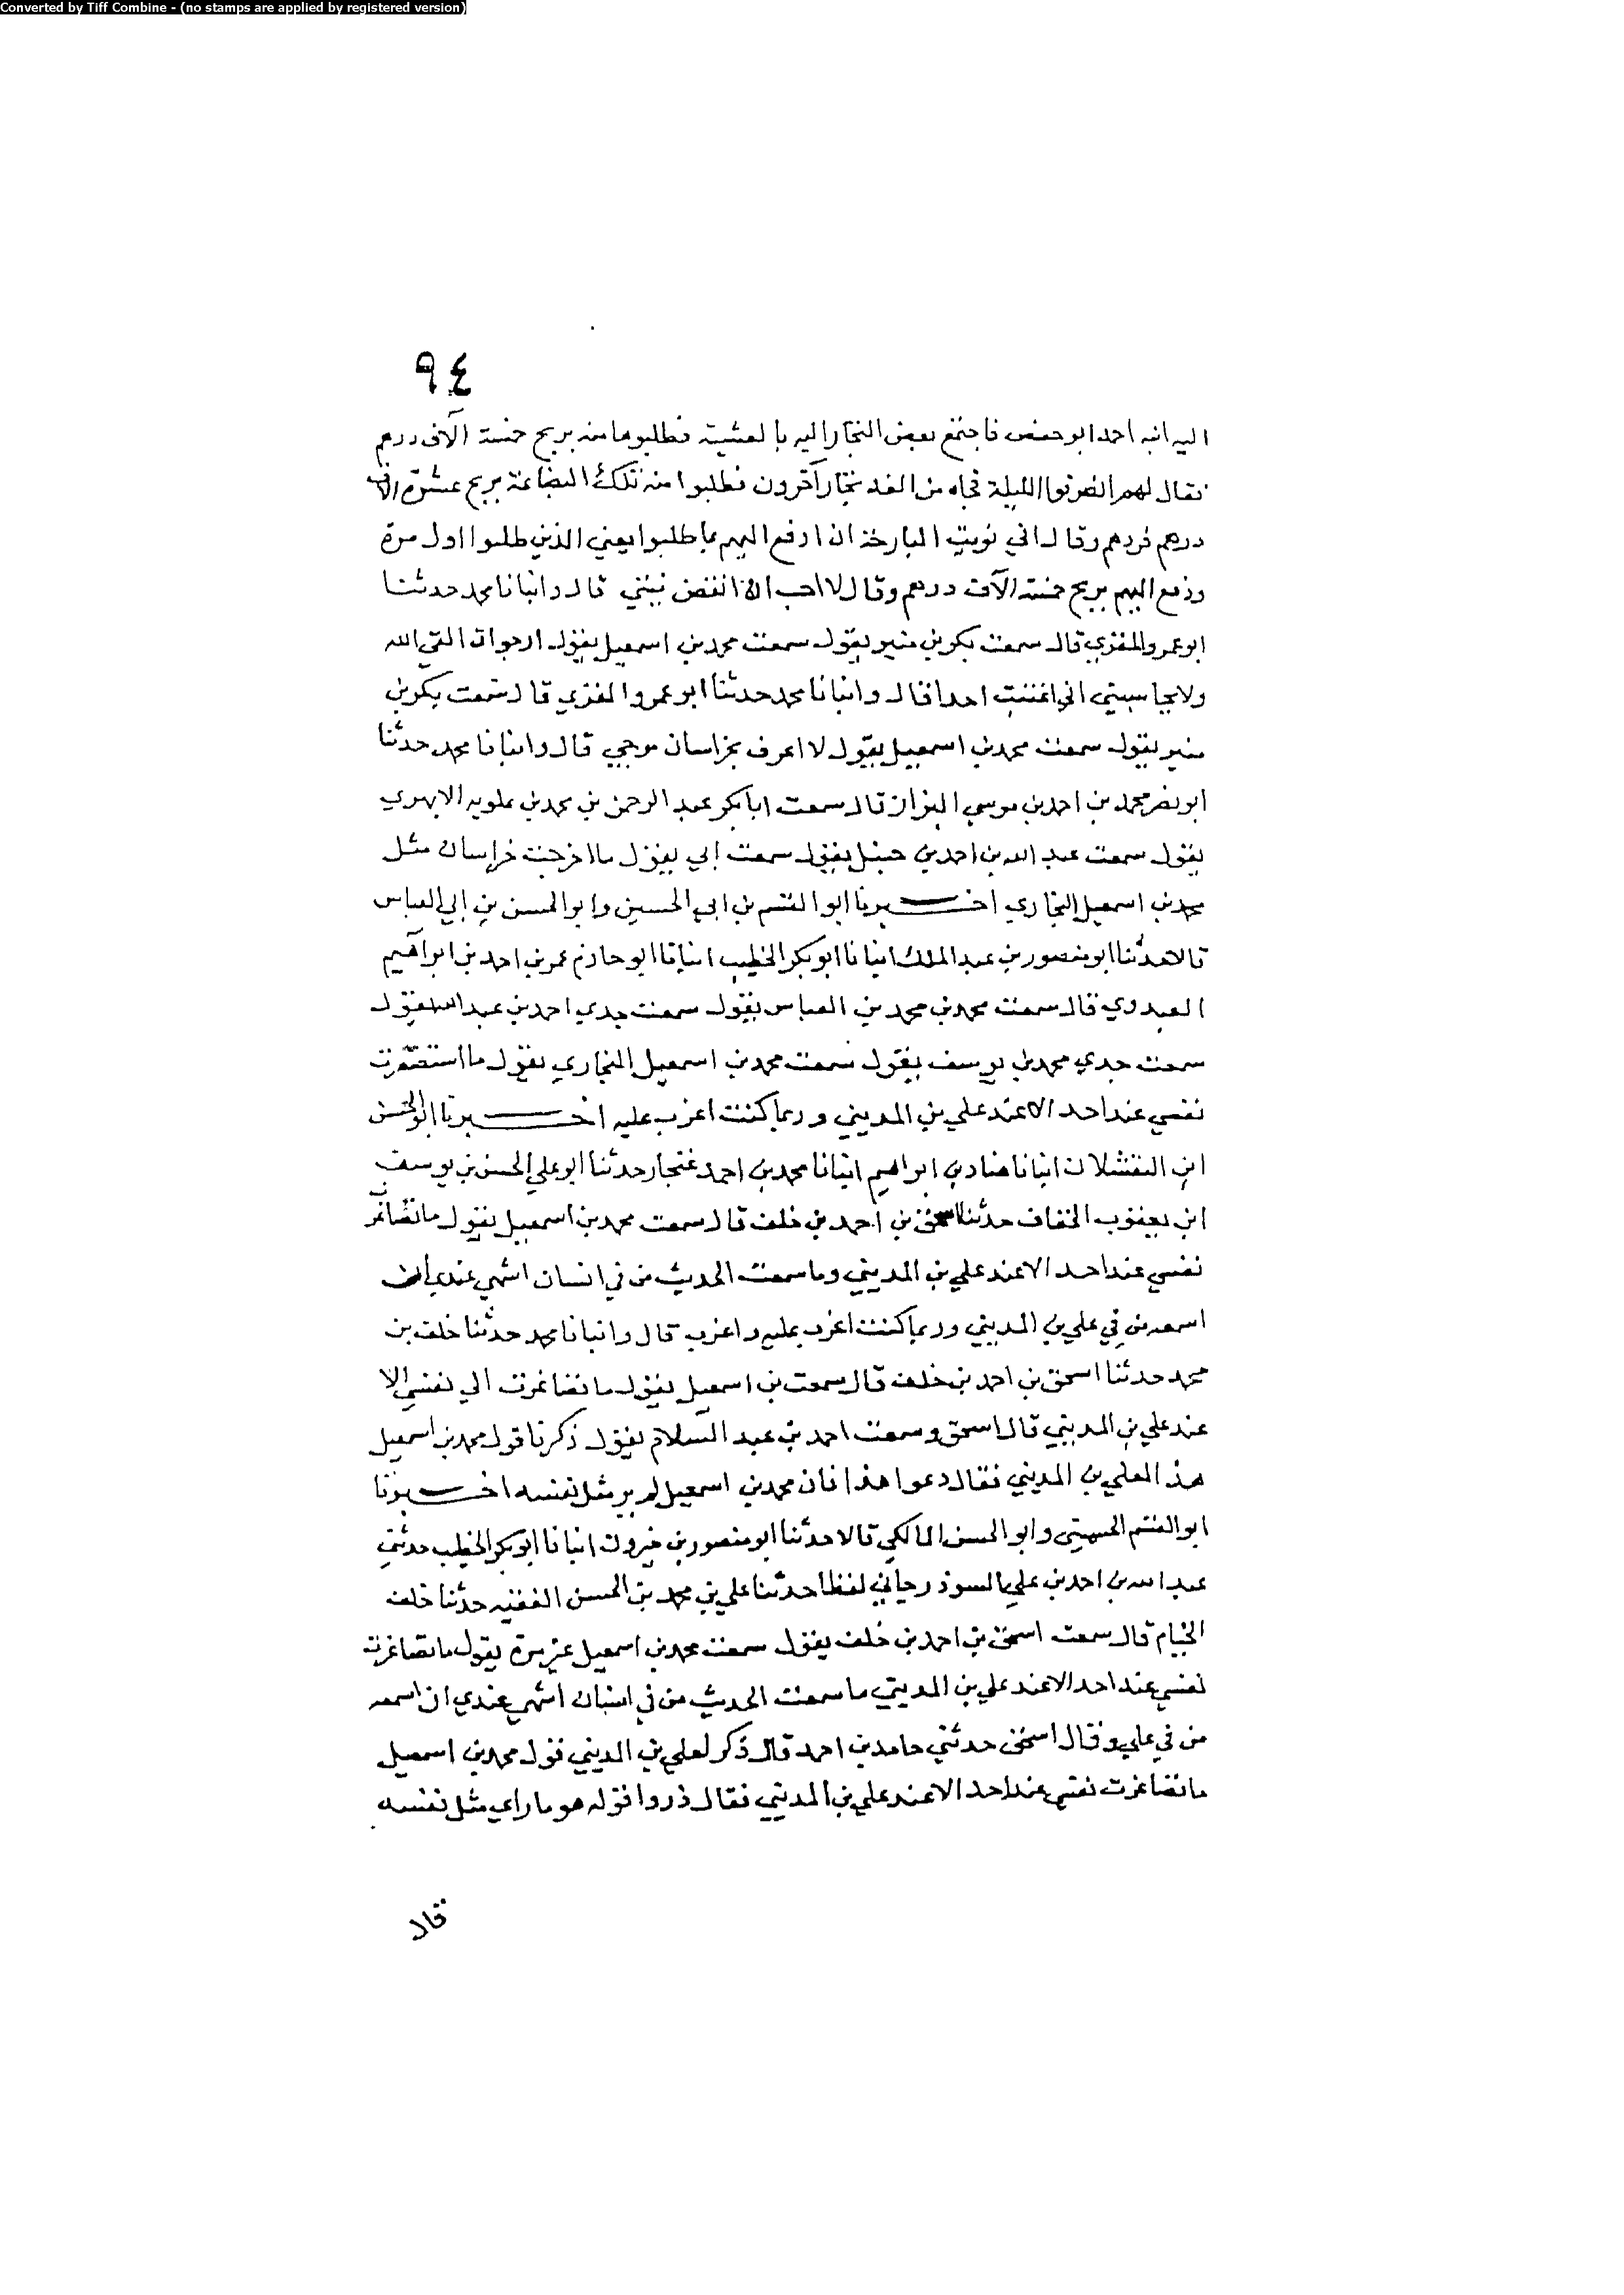 Converted by Tiff Combine - (no stamps are applied by registered version)
٩٤
اليه ابنه احمد ابو حفص فاجتمع بعض التجار اليه بالعشية فطلبوها منه بربح خمسة آلاف درهم
فقال لهم انصرفوا الليلة فجاه من الغد تجار آخرون فطلبوا منه تلك البضاعة بربح عشرة الاف
درهم فردهم وقال اني نويت البارحة ان ادفع اليهم بما طلبوا يعني الذين طلبوا اول مرة
ودفع اليهم بربح خمسة الآف درهم وقال لا احب ان انقض نيتي قال وانبانا محمد حدثنا
ابو عمرو المقري قال سمعت بكر بن منير يقول سمعت محمد بن اسمعيل يقول ارجو ان القي الله
ولا يحاسبني اني اغتبت احدا قال وانبانا محمد حدثنا ابو عمرو المقري قال سمعت بكر بن
منير يقول سمعت محمد بن اسمعيل يقول لا اعرف بخراسان موجبي قال وانبانا محمد حدثنا
ابو نصر محمد بن احمد بن موسى البزاز قال سمعت ابا بكر عبد الرحمن بن محمد بن علويه الابهري
يقول سمعت عبد الله بن احمد بن حنبل يقول سمعت ابي يقول ما اخرجت خراسان مثل
محمد بن اسمعيل البخاري اخـــبرنا ابو القسم بن ابي الحسين وابو الحسن بن ابي العباس
قالا حدثنا ابو منصور بن عبد الملك انبانا ابو بكر الخطيب انبانا ابو حازم عمر بن احمد بن ابراهيم
العبدوي قال سمعت محمد بن محمد بن العباس يقول سمعت جدي احمد بن عبد الله يقول
سمعت جدي محمد بن يوسف يقول سمعت محمد بن اسمعيل البخاري يقول ما استصغرت
نفسي عند احد الا عند علي بن المديني وربما كنت اغرب عليه اخـــبرنا ابو الحسن
ابن البقشلان انبانا هناد بن ابراهيم انبانا محمد بن احمد غنجار حدثنا ابو علي الحسن بن يوسف
ابن يعقوب الخفاف حدثنا اسحق بن احمد بن خلف قال سمعت محمد بن اسمعيل يقول ما تصاغرت
نفسي عند احد الا عند علي بن المديني وما سمعت الحديث من في انسان اشهى عندي ان
اسمعه من في علي بن المديني وربما كنت اغرب عليه واغرب قال وانبانا محمد حدثنا خلف بن
محمد حدثنا اسحق بن احمد بن خلف قال سمعت بن اسمعيل يقول ما تصاغرت الي نفسي الا
عند علي بن المديني قال اسحق وسمعت احمد بن عبد السلام يقول ذكرنا قول محمد بن اسمعيل
هذا لعلي بن المديني فقال دعوا هذا فان محمد بن اسمعيل لم ير مثل نفسه اخـــبرنا
ابو القسم الحسيني وابو الحسن المالكي قالا حدثنا ابو منصور بن خيرون انبانا ابو بكر الخطيب حدثني
عبد الله بن احمد بن علي السوذرجاني لفظا حدثنا علي بن محمد بن الحسن الفقيه حدثنا خلف
الخيام قال سمعت اسحق بن احمد بن خلف يقول سمعت محمد بن اسمعيل غير مرة يقول ما تصاغرت
نفسي عند احد الا عند علي بن المديني ما سمعت الحديث من في انسان اشهى عندي ان اسمعه
من في علي وقال اسحق حدثني حامد بن احمد قال ذكر لعلي بن المديني قول محمد بن اسمعيل
ما تصاغرت نفسي عند احد الا عند علي بن المديني فقال ذروا قوله هو ما راي مثل نفسه
قال